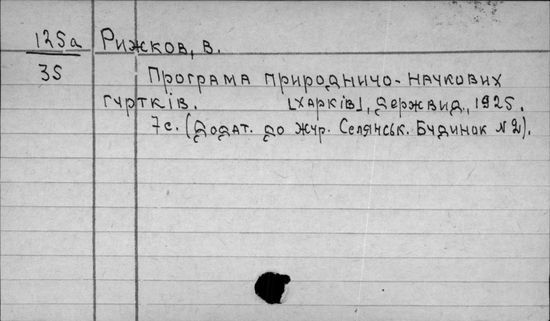 125а Рижков, В.
35
Програма природничо-наукових
гуртків. [Харків], Держвид, 1925.
7с. (Додат. до жур. Селянськ. Будинок №2).